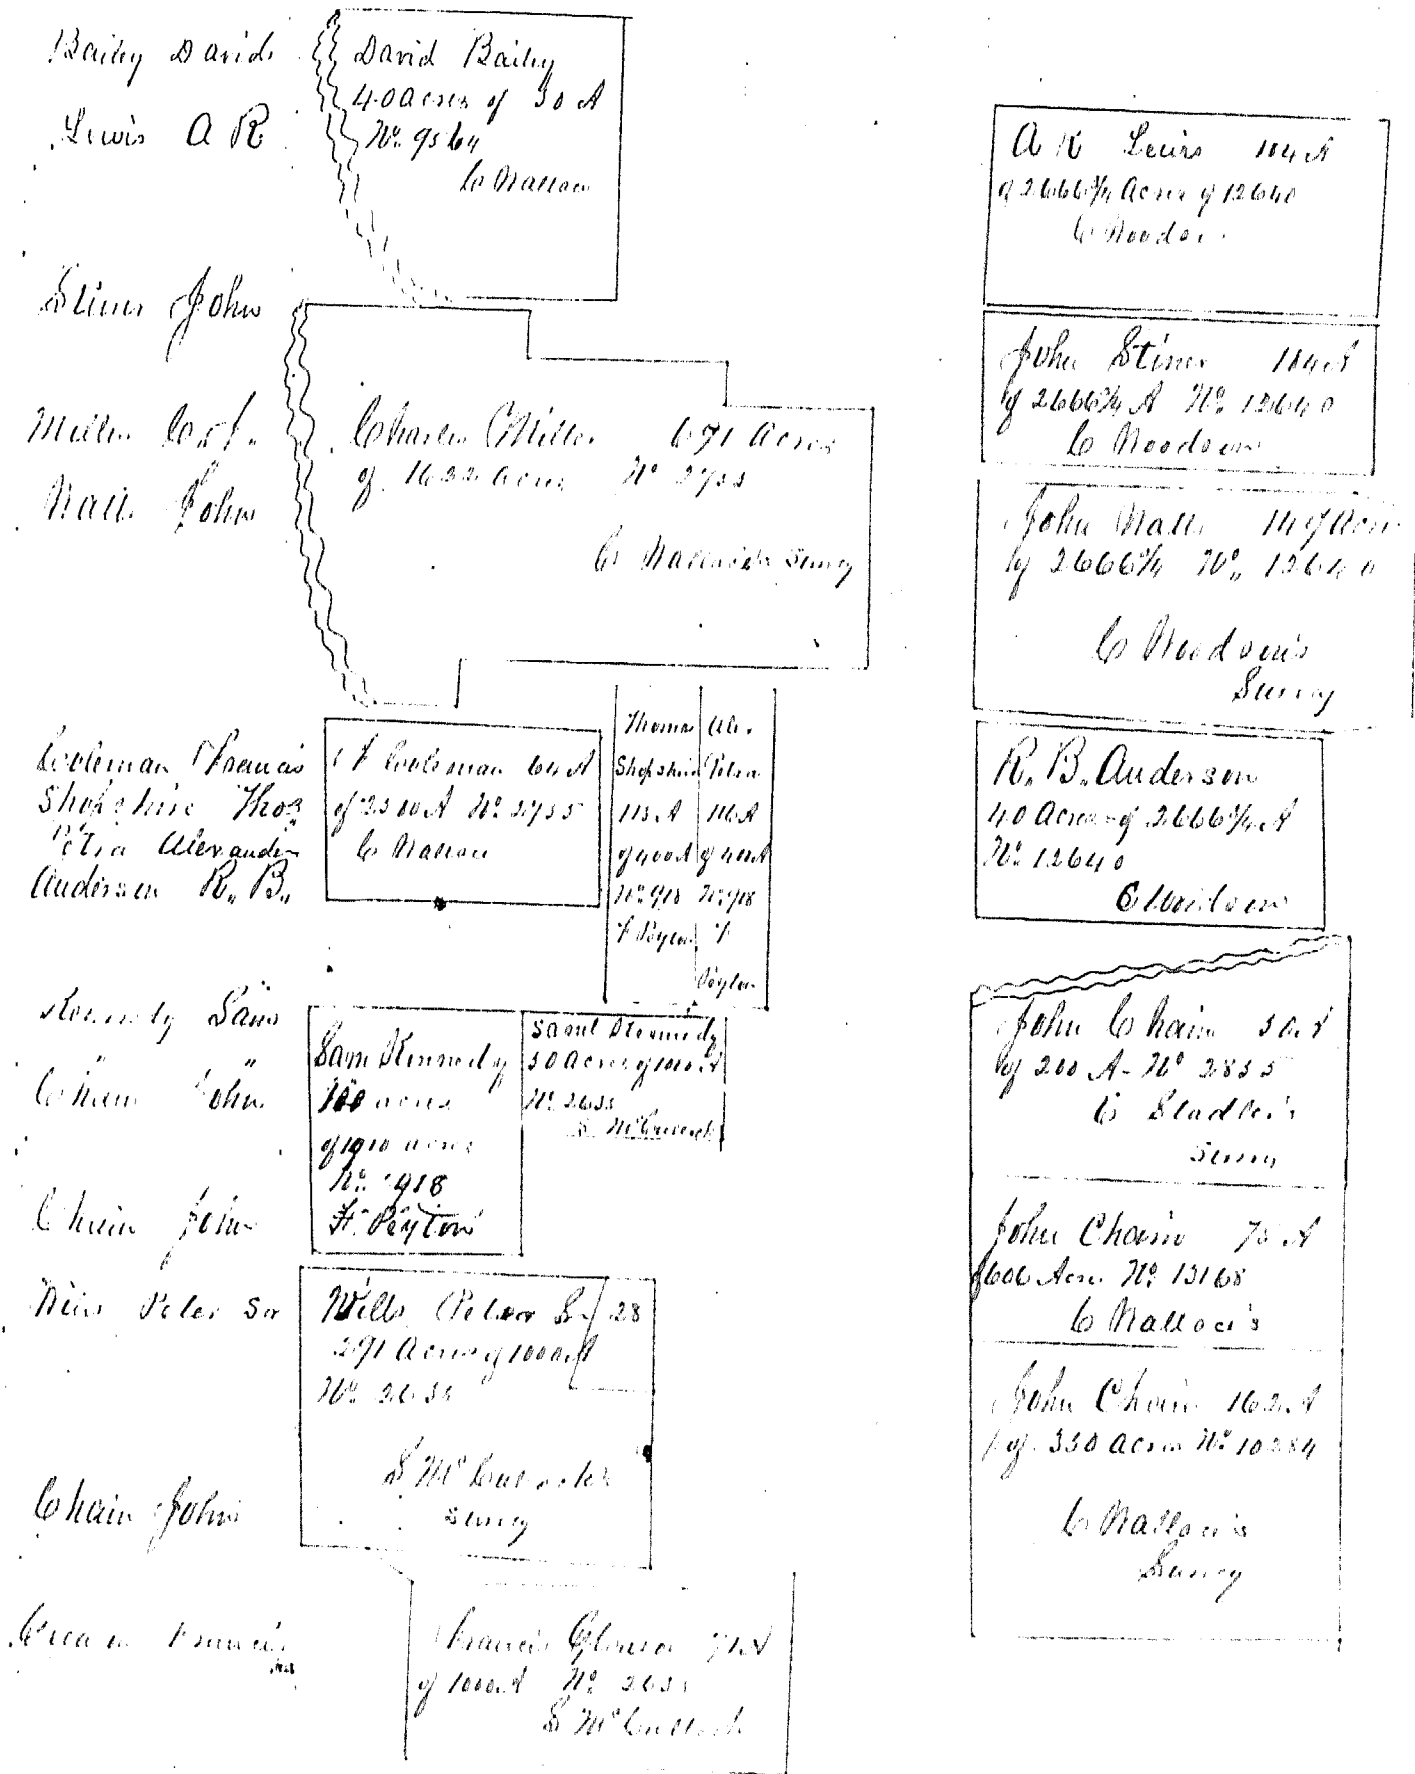 Bailey David
Lewis A R
Stiner John
Miller
John
Cooleman Francis
Shopshire Thos
Petra Alexander
Anderson R. B.
Kennedy Sam
" "
Chain John
Chain John
Peter Sr
Chain John
Francis
David Bailey
40 Acres of 50 A
No. 9564
C
Charles Miller 691 Acres
of 1622 Acres No 2733
C Survey
F Cooleman 64 A
of 2500 A No 2735
C
Thomas
Shopshire
113 A
of 400 A
No 918
F Peyton
Alex.
Petra
116 A
of 400 A
No 918
F
Peyton
Sam Kennedy
100 acres
of 1910 acres
No. 918
F. Peyton
Saml Kennedy
50 Acres of 1000 A
No 2633
S McCulloch
Wills Peter Sr 28
291 Acres of 1000 A
No 2633
S McCulloch's
Survey
Francis 71 A
of 1000 A No 2633
S McCulloch
A R Lewis 104 A
of 2666 3/4 Acres of 12640
C Woodson
John Stiner 104 A
of 2666 3/4 A No. 12640
C Woodson
John 147 Acres
of 2666 3/4 No. 12640
C Woodson's
Survey
R. B. Anderson
40 Acres of 2666 3/4 A
No. 12640
C Woodson
John Chain 50 A
of 200 A - No 2835
C Stadler's
Survey
John Chain 75 A
of 606 Acres No. 13168
C
John Chain 162 A
of 330 Acres No 10284
C
Survey